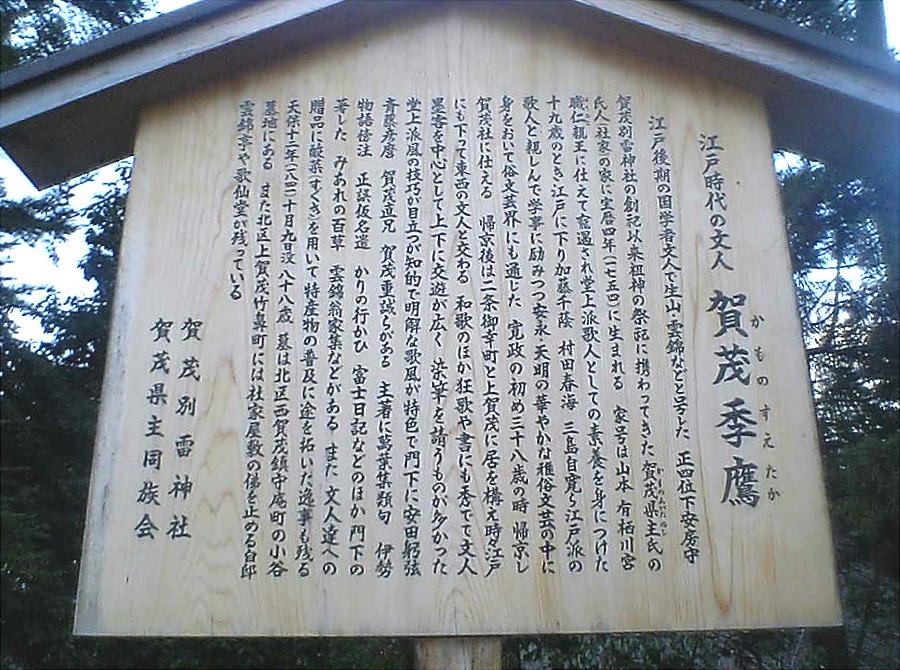 江戸時代の文人 賀茂季鷹
かものすえたか
江戸後期の国学者文人で生山・雲錦などと号した 正四位下安房守
賀茂別雷神社の創祀以来祖神の祭祀に携わってきた賀茂県主氏の
氏人(社家)の家に宝暦四年(一七五四)に生まれる 家号は山本 有栖川宮
職仁親王に仕えて寵遇され堂上派歌人としての素養を身につけた
十九歳のとき江戸に下り加藤千蔭 村田春海 三島自寛ら江戸派の
歌人と親しんで学事に励みつつ安永・天明の華やかな雅俗文芸の中に
身をおいて俗文芸界にも通じた 寛政の初め三十八歳の時 帰京し
賀茂社に仕える 帰京後は二条御幸町と上賀茂に居を構え時に江戸
にも下って東西の文人と交わる 和歌のほか狂歌や書にも秀でて文人
墨客を中心として上下に交遊が広く 染筆を請うものが多かった
堂上派風の技巧が目立つが知的で明解な歌風が特色で門下に安田躬弦
斉藤彦麿 賀茂直兄 賀茂重誠らがある 主著に萬葉集類句 伊勢
物語傍注 正誤仮名遣 かりの行かひ 富士日記などのほか 門下の
著した みあれの百草 雲錦翁家集などがある また 文人達への
贈品に酸茎(すぐき)を用いて特産物の普及に途を拓いた逸事も残る
天保十二年(一八四一)十月九日没 八十八歳 墓は北区西賀茂鎮守庵町の小谷
墓地にある また北区上賀茂竹鼻町には社家屋敷の俤を止める自邸
雲錦亭や歌仙堂が残っている
賀茂別雷神社
賀茂県主同族会